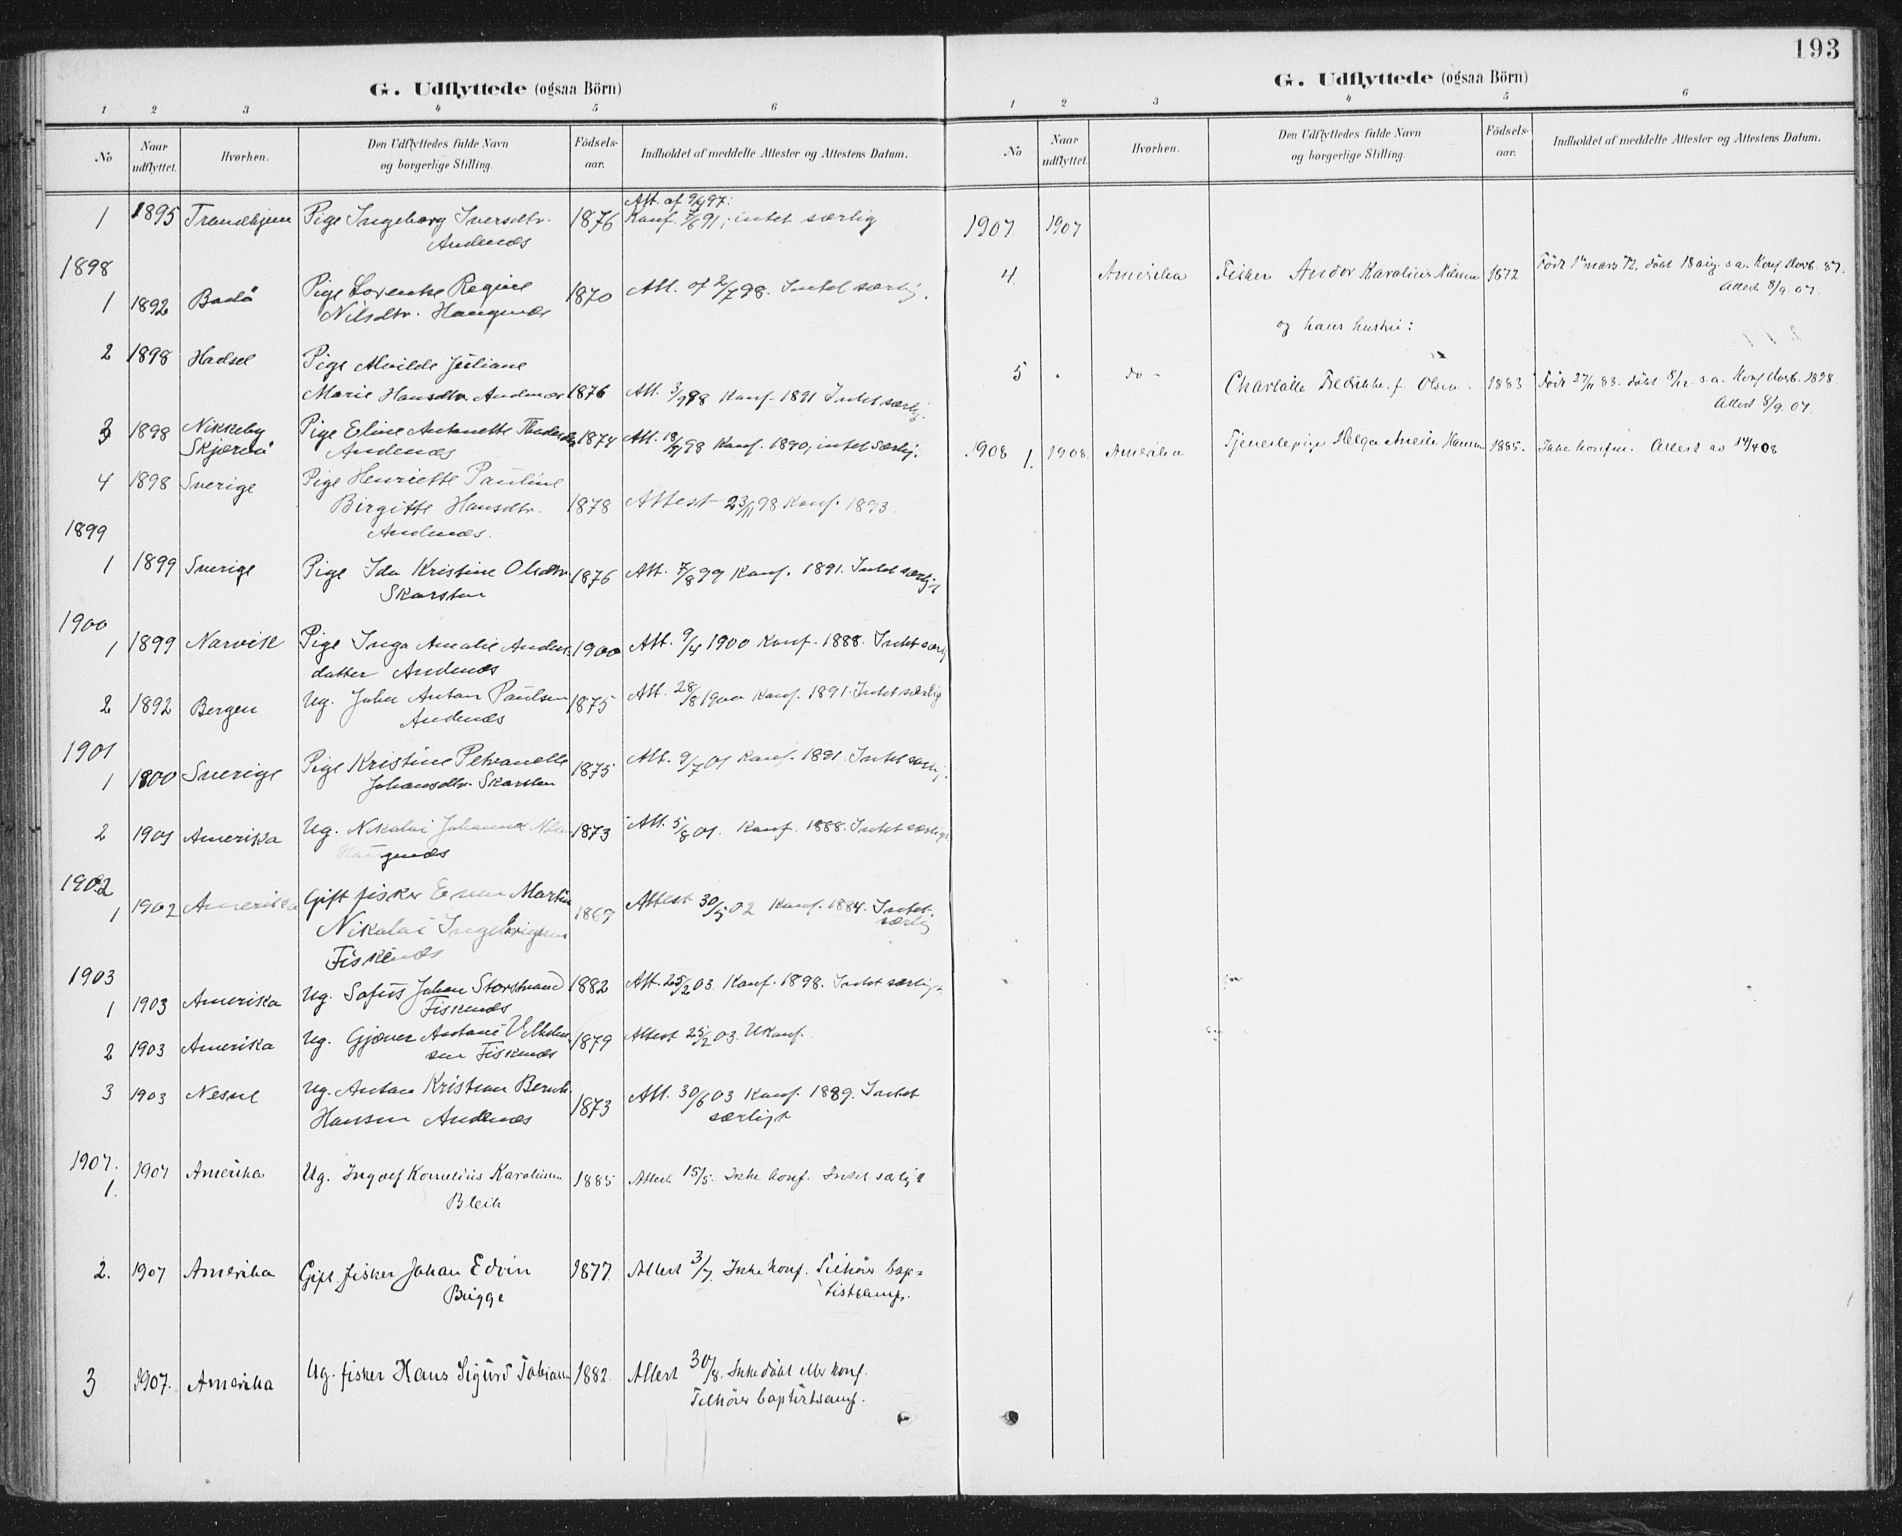 193
G. Udflyttede (ogsaa Börn)
1 2 3 4 5 6
No
Naar udflyttet.
Hvorhen.
Den Udflyttedes fulde Navn
og borgerlige Stilling.
Födsels-
aar.
Indholdet af meddelte Attester og Attestens Datum.
Att. af 9/9 97:
1 1895 Trondhjem Pige Ingeborg Iversdtr. 1876 Konf. 91; intet særlig
Andenæs
1898
1 1892 Bodö Pige Lorentze Regine 1870 Att. af 2/7 98. Intet særlig.
Nilsdtr. Haugnæs
2 1898 Hadsel Pige Alvilde Juliane
Marie Hansdtr. Andenæs 1876 Att. 3/9 98 Konf. 1891 Intet særlig.
3 1898 Nikkeby Pige Eline Antonette 1874 Att. 98 Konf. 1890, intet særlig.
Skjervö Andenæs
4 1898 Sverige Pige Henriette Pauline
Birgitte Hansdtr. 1878 Attest 23/11 98 Konf. 1893.
Andenæs.
1899
1 1899 Sverige Pige Ida Kristine Olsdtr. 1876 Att. 7/8 99 Konf. 1891. Intet særligt
Skarsten
1900
1 1899 Narvik Pige Inga Amalie Anders- 1900 Att. 9/4 1900 Konf. 1888. Intet særlig
datter Andenæs
2 1892 Bergen Ug. John Anton Paulsen 1875 Att. 28/8 1900 Konf. 1891. Intet særlig
Andenæs
1901
1 1900 Sverige Pige Kristine Petronelle 1875 Att. 9/7 01 Konf. 1891. Intet særlig.
Johansdtr. Skarsten
2 1901 Amerika Ug. Nikolai Johannes 1873 Att. 5/8 01. Konf. 1888. Intet særligt
Haugnæs
1902
1 1902 Amerika Gift fisker Martin 1869 Attest 30/5 02 Konf. 1884. Intet
Nikolai Ingebrigtsen særlig
Fiskenæs
1903
1 1903 Amerika Ug. Sofus Johan Storstrand 1882 Att. 25/2 03. Konf. 1898. Intet særligt
Fiskenæs
2 1903 Amerika Ug. Gjæver Antoni 1879 Attest 25/2 03. Ukonf.
sen Fiskenæs
3 1903 Nesne Ug. Anton Kristian Bernh. 1873 Att. 30/6 03 Konf. 1889. Intet
Hansen Andenæs særligt
1907.
1. 1907 Amerika Ug. Ingolf Kornelius Karoliussen 1885 Attest 15/5. Ikke konf. Intet særligt
Bleik
2. 1907 Amerika Gift fisker Johan Edvin 1877. Attest 3/7. Ikke konf. Tilhører bap=
Brigge tistsamf.
3 1907. Amerika Ug. fisker Hans Sigurd 1882. Attest 30/8. Ikke döbt eller konf.
Tilhører baptistsamf.
G. Udflyttede (ogsaa Börn)
1 2 3 4 5 6
No
Naar
udflyttet.
Hvorhen.
Den Udflyttedes fulde Navn
og borgerlige Stilling.
Födsels-
aar.
Indholdet af meddelte Attester og Attestens Datum.
1907 1907
4. Amerika Fisker Andor Karolius Nilssen 1872 Född 1ste mars 72, döbt 18 aug. s.a. Konf. Dverb. 87.
Attest 8/9. 07.
og hans hustru:
5 " do - Charlotte Fredrikke f. Olsen 1883 Född 27/11 83. döbt 8/12. s.a. Konf. Dverb. 1898.
Attest 8/9. 07.
1908 1. 1908. Amerika Tjenestepige Helga Hansen 1885. Ikke konfirm. Attest av 14/4 08